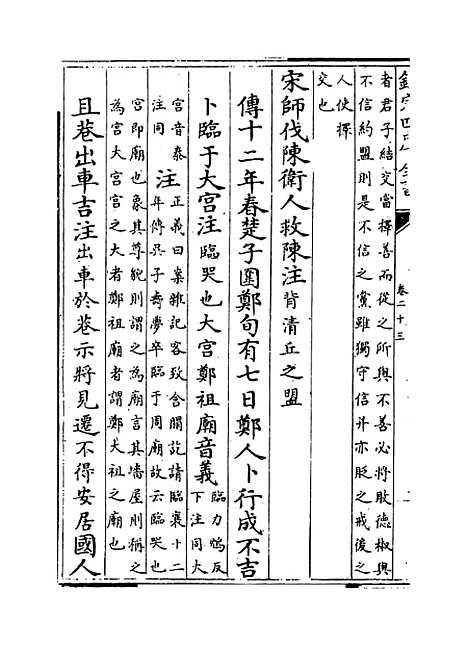 欽定四庫全書
卷二十三
者君子結交當擇善而從之所與不善必將敗德椒與
不信約盟則是不信之黨雖獨守信并亦貶之戒後之
人使擇
交也
宋師伐陳衛人救陳注背清丘之盟
傳十二年春楚子圍鄭旬有七日鄭人卜行成不吉
卜臨于大宫注臨哭也大宫鄭祖廟音義臨力鴆反下注同大
宫音泰注同注正義曰案雜記客致含賵訖請臨襄十二年傳吳子壽夢卒臨于周廟故云臨哭也
宫即廟也象其尊貌則謂之為廟言其墻屋則稱之
為宫大宫宫之大者鄭祖廟者謂鄭大祖之廟也
且巷出車吉注出車於巷示將見遷不得安居國人